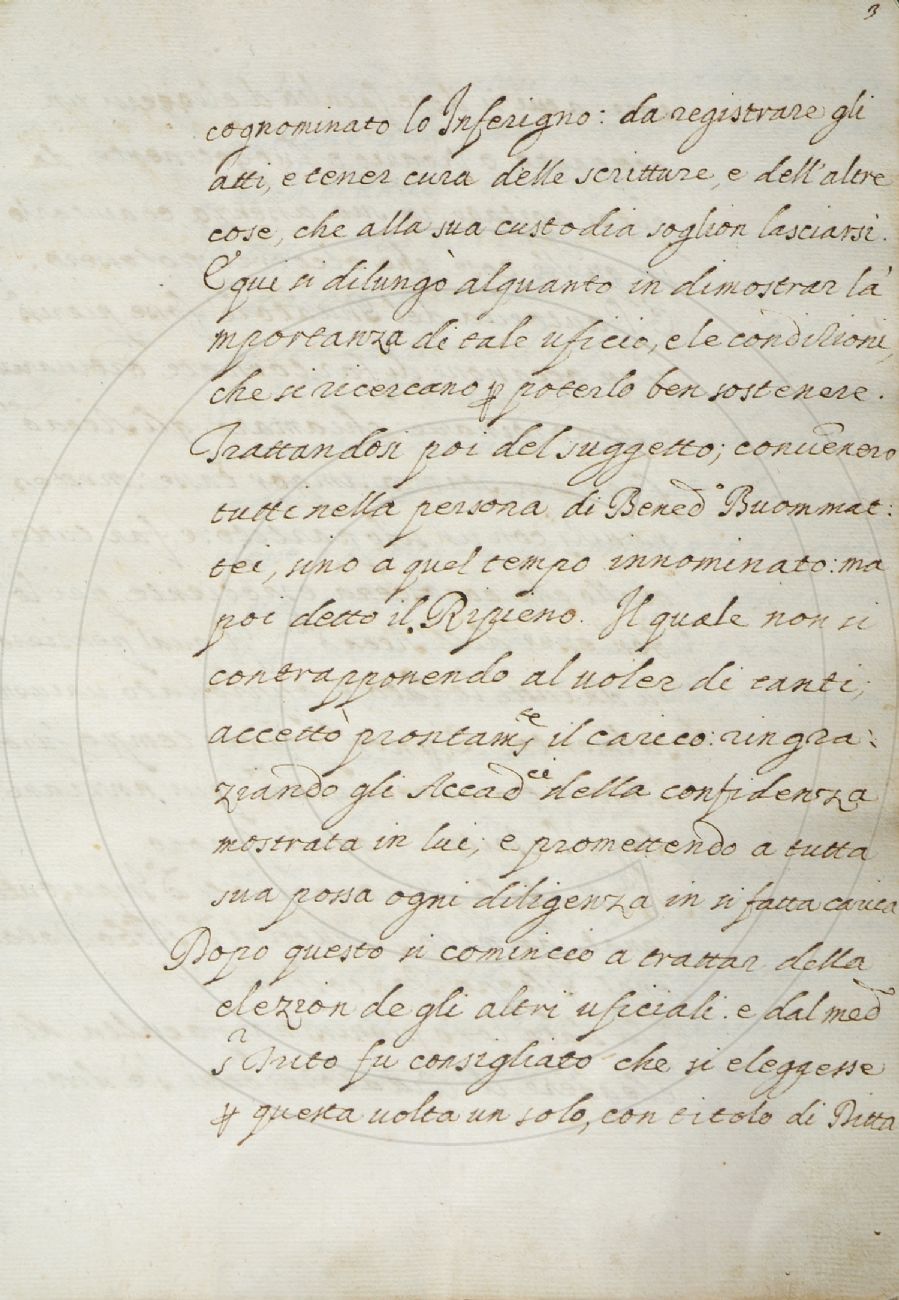 3
cognominato lo Inferigno: da registrare gli
atti, e tener cura delle scritture, e dell'altre
cose, che alla sua custodia soglion lasciarsi.
E qui si dilungò alquanto in dimostrar la'
mportanza di tale uficio, e le condizioni,
che si ricercano ꝑ poterlo ben sostenere.
Trattandosi poi del suggetto; convennero
tutti nella persona di Bened.º Buommat:
tei, sino a quel tempo innominato: ma
poi detto il Ripieno. Il quale non si
contrapponendo al voler di tanti,
accettò prontam.te il carico: ringra:
ziando gli Accad.ci della confidenza
mostrata in lui; e promettendo a tutta
sua possa ogni diligenza in si fatta carica
Dopo questo si cominciò a trattar della
elezion de gli altri uficiali. e dal med.
sr Trito fu consigliato che si eleggesse
ꝑ questa volta un solo, con titolo di Ditta